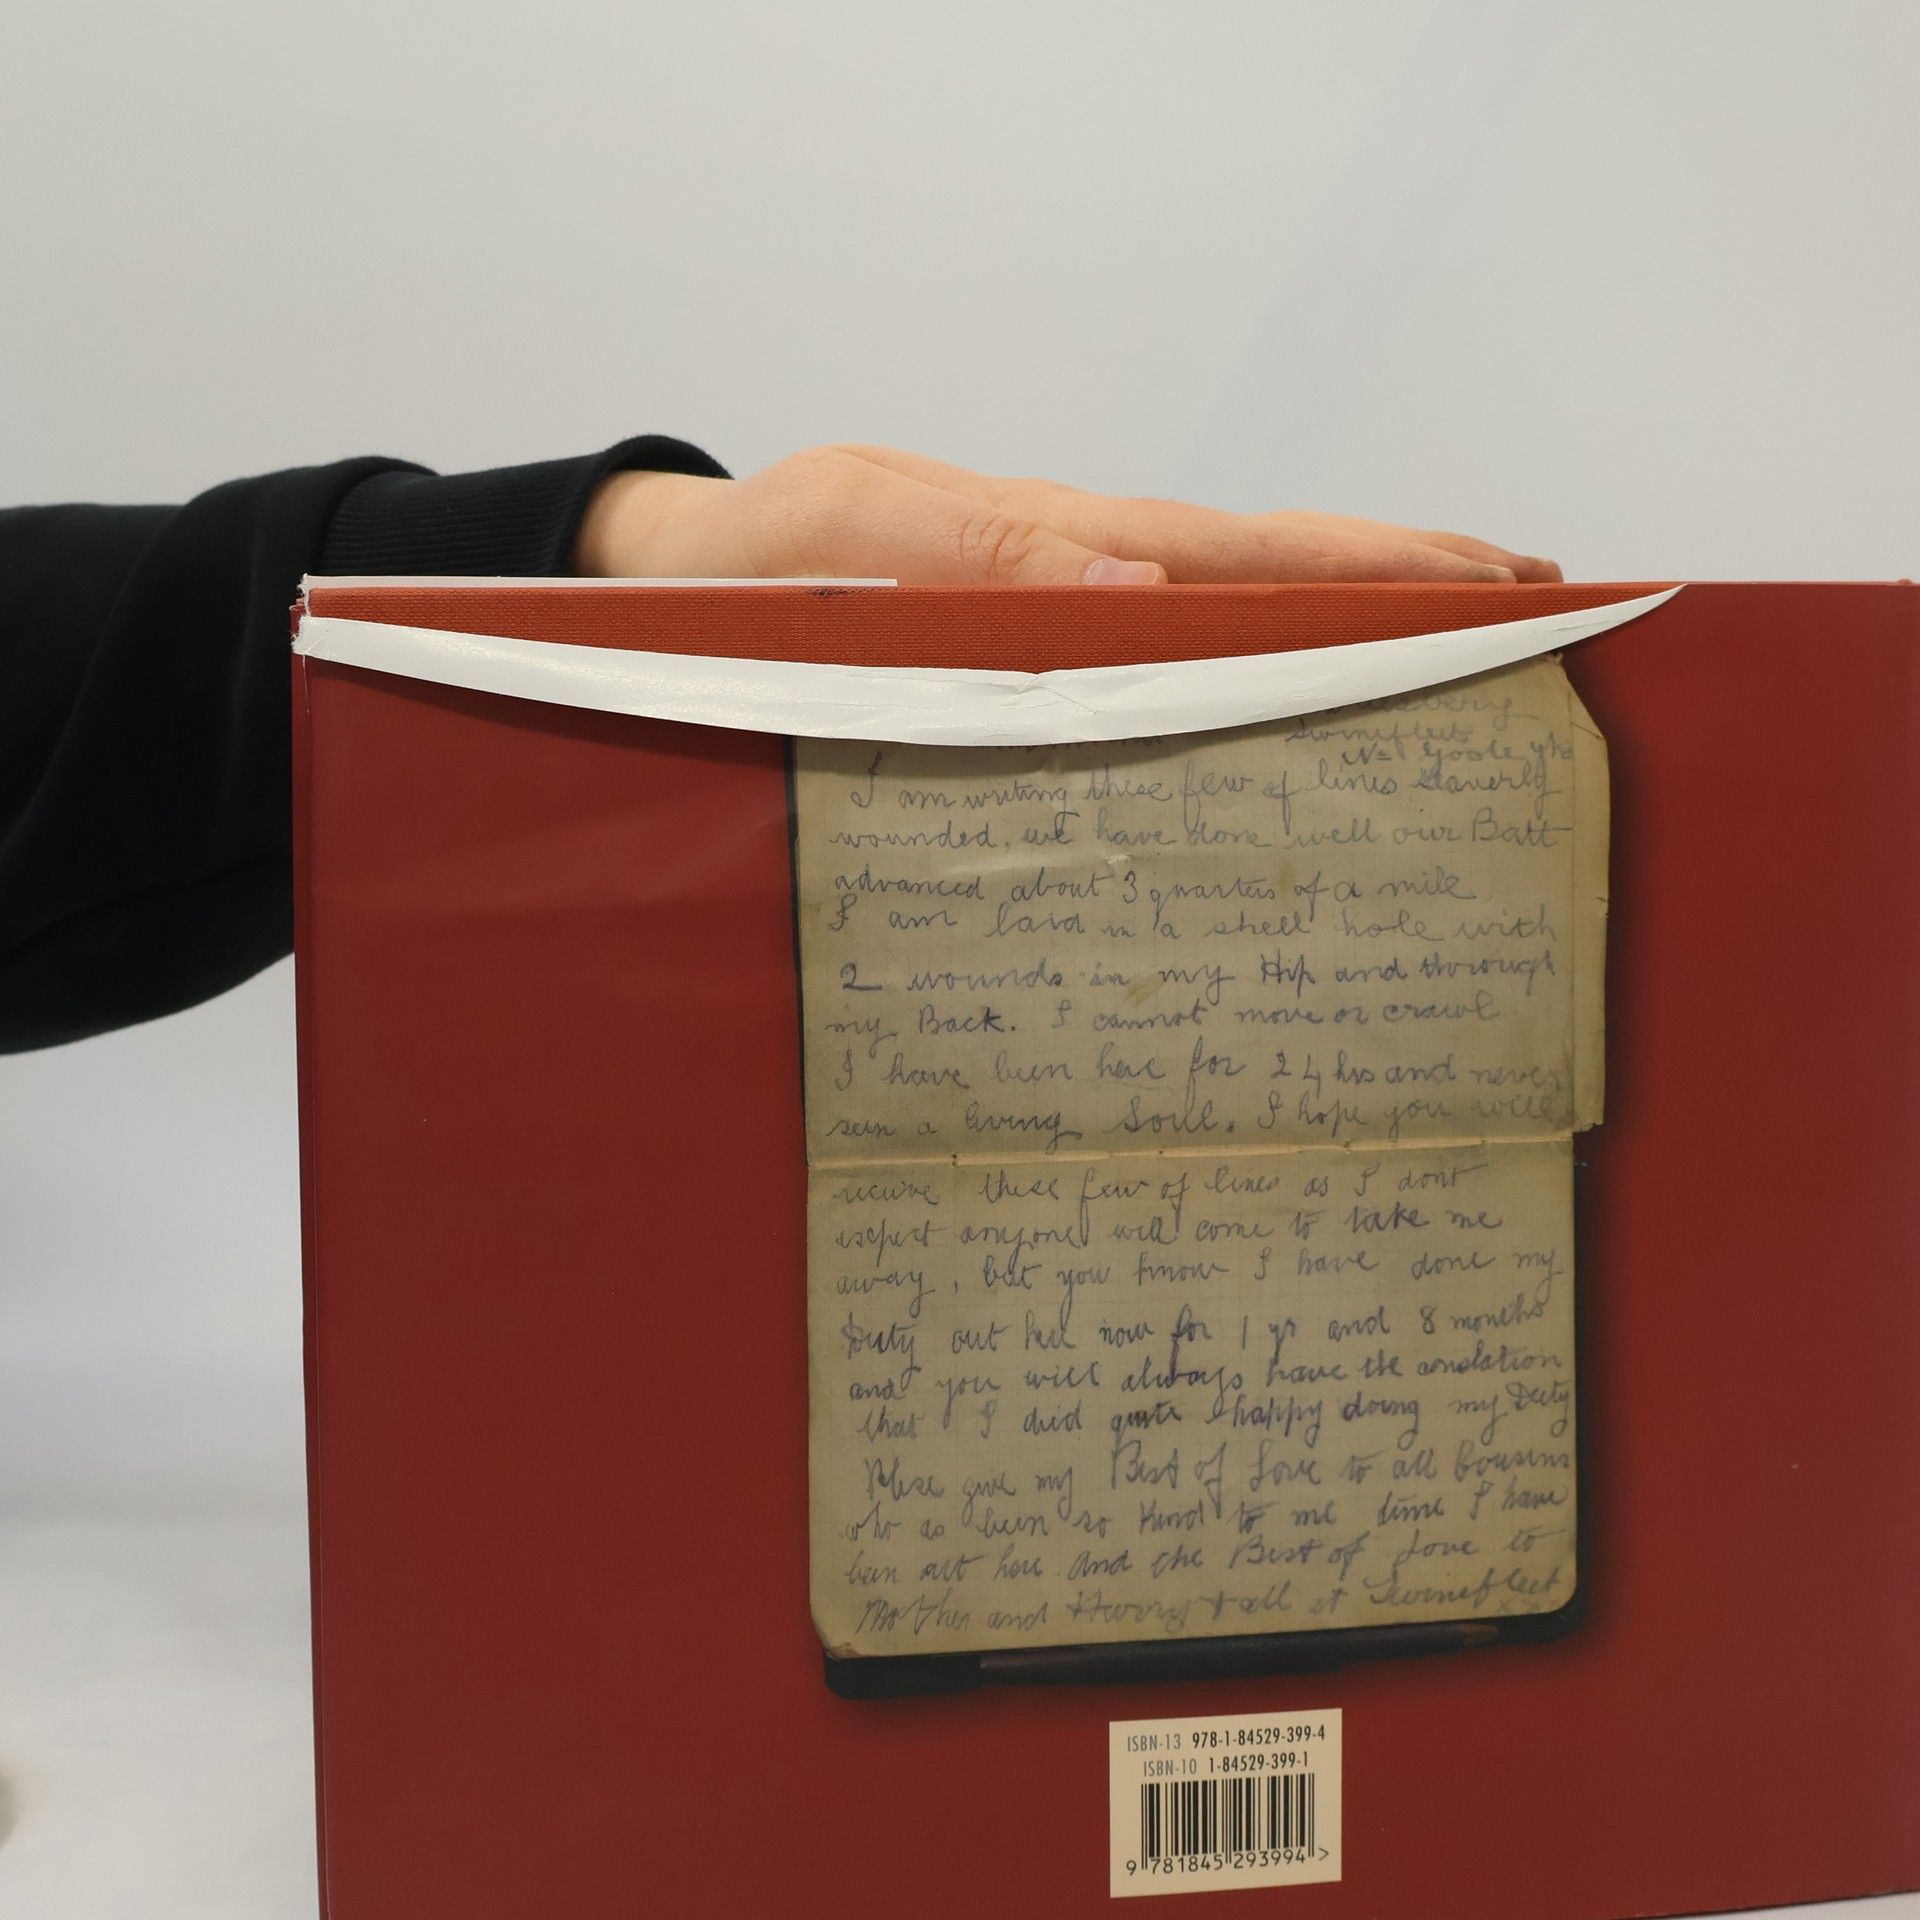 Swinefleet
Nr Goole Yks
I am writing these few of lines
wounded, we have done well our Batt
advanced about 3 quarters of a mile
I am laid in a shell hole with
2 wounds in my Hip and through
my Back. I cannot move or crawl
I have been here for 24 hrs and never
seen a living Soul. I hope you will
receive these few of lines as I dont
expect anyone will come to take me
away, but you know I have done my
Duty out here now for 1 yr and 8 months
and you will always have the
that I died quite happy doing my Duty
give my Best of Love to all Cousins
who as been so Kind to me time I have
been out here. And the Best of Love to
Mother and Harry & all at Swinefleet
x x x
ISBN-13 978-1-84529-399-4
ISBN-10 1-84529-399-1
9 781845 293994 >